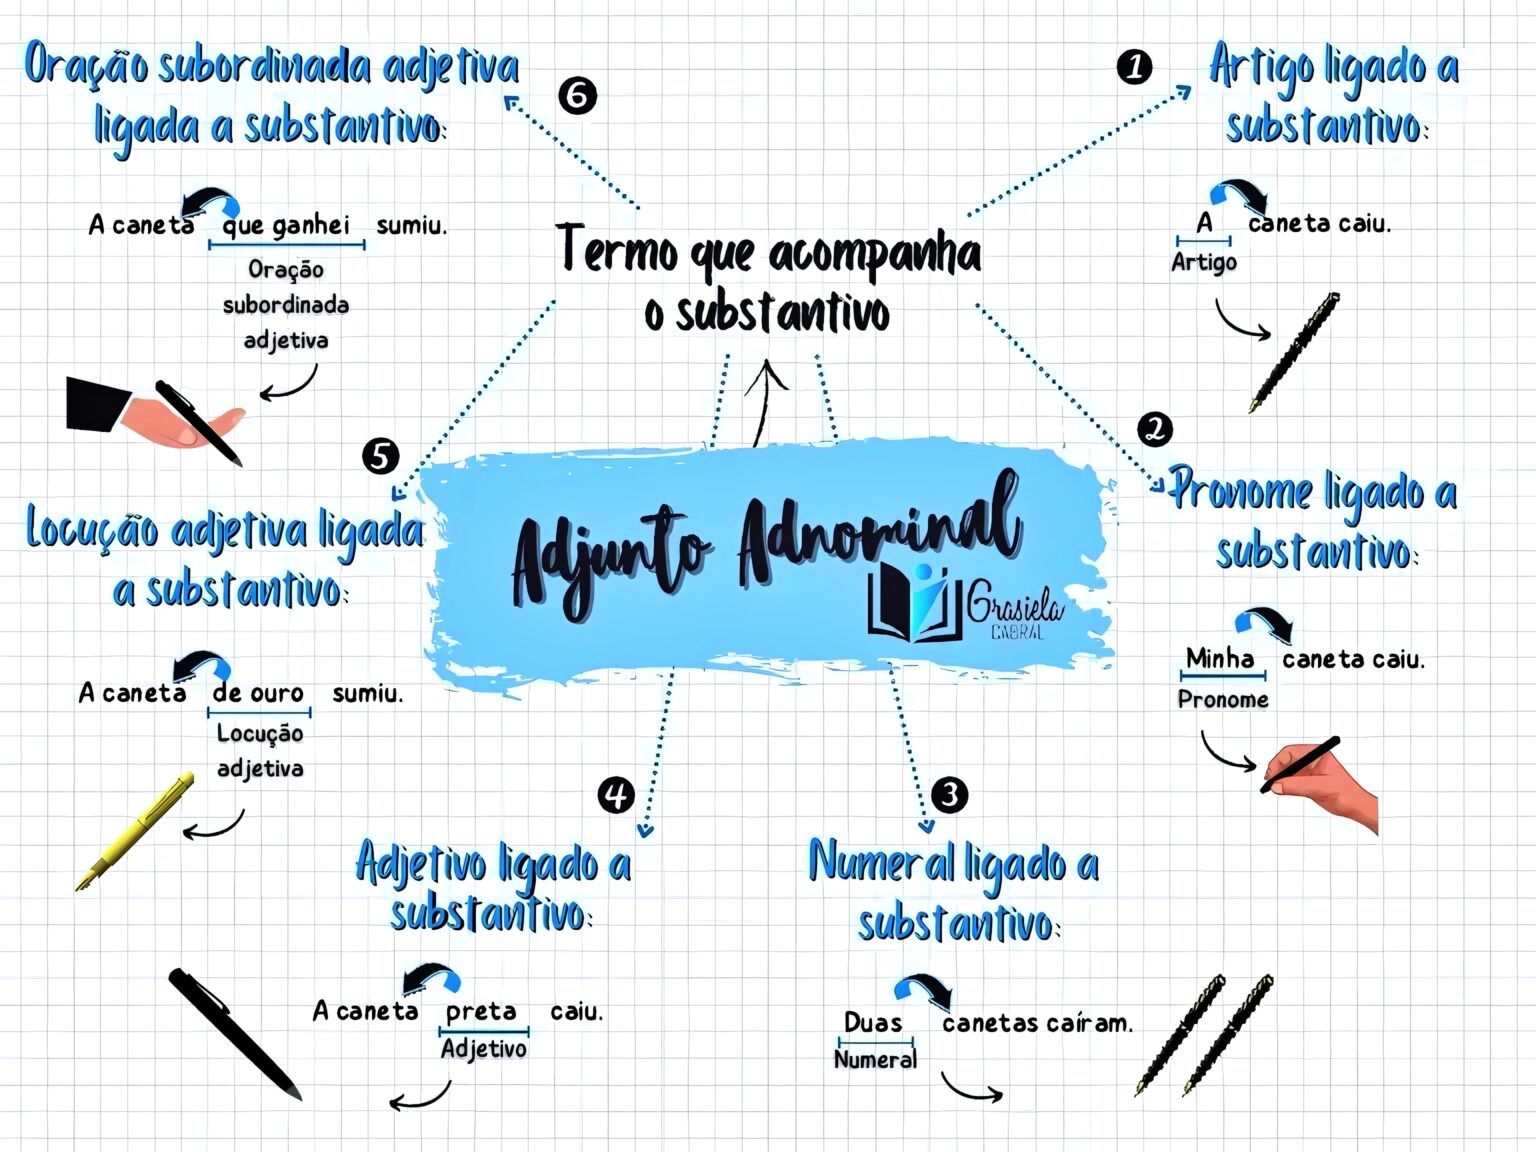 Adjunto Adnominal
Grasiela
CABRAL
Termo que acompanha
o substantivo
1
Artigo ligado a
substantivo:
A caneta caiu.
Artigo
2
Pronome ligado a
substantivo:
Minha caneta caiu.
Pronome
3
Numeral ligado a
substantivo:
Duas canetas caíram.
Numeral
4
Adjetivo ligado a
substantivo:
A caneta preta caiu.
Adjetivo
5
Locução adjetiva ligada
a substantivo:
A caneta de ouro sumiu.
Locução
adjetiva
6
Oração subordinada adjetiva
ligada a substantivo:
A caneta que ganhei sumiu.
Oração
subordinada
adjetiva